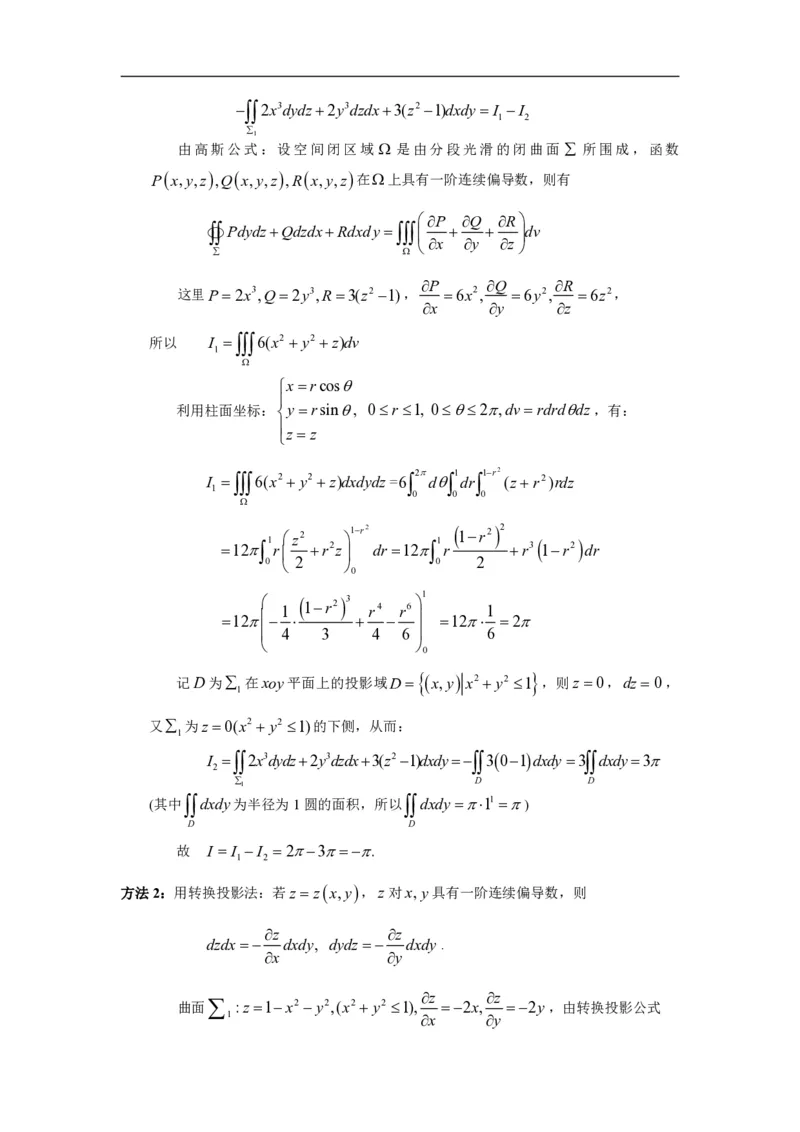 $-\iint\limits_{\Sigma_1} 2x^3dydz+2y^3dzdx+3(z^2-1)dxdy=I_1-I_2$
由高斯公式：设空间闭区域 Ω 是由分段光滑的闭曲面 Σ 所围成，函数
$P(x,y,z),Q(x,y,z),R(x,y,z)$在Ω上具有一阶连续偏导数，则有
$\oiint\limits_{\Sigma} Pdydz+Qdzdx+Rdxdy=\iiint\limits_{\Omega}\left(\frac{\partial P}{\partial x}+\frac{\partial Q}{\partial y}+\frac{\partial R}{\partial z}\right)dv$
这里$P=2x^3,Q=2y^3,R=3(z^2-1)$，$\frac{\partial P}{\partial x}=6x^2,\frac{\partial Q}{\partial y}=6y^2,\frac{\partial R}{\partial z}=6z^2$，
所以 $I_1=\iiint\limits_{\Omega}6(x^2+y^2+z)dv$
利用柱面坐标：$\begin{cases}x=r\cos\theta\\y=r\sin\theta\\z=z\end{cases},\ 0\le r\le 1,\ 0\le\theta\le 2\pi,dv=rdrd\theta dz$，有：
$I_1=\iiint\limits_{\Omega}6(x^2+y^2+z)dxdydz=6\int_0^{2\pi}d\theta\int_0^1dr\int_0^{1-r^2}(z+r^2)rdz$
$=12\pi\int_0^1 r\left(\frac{z^2}{2}+r^2z\right)_0^{1-r^2}dr=12\pi\int_0^1 r\frac{(1-r^2)^2}{2}+r^3(1-r^2)dr$
$=12\pi\left(-\frac{1}{4}\cdot\frac{(1-r^2)^3}{3}+\frac{r^4}{4}-\frac{r^6}{6}\right)_0^1=12\pi\cdot\frac{1}{6}=2\pi$
记$D$为$\Sigma_1$在$xoy$平面上的投影域$D=\{(x,y)|x^2+y^2\le 1\}$，则$z=0$，$dz=0$，
又$\Sigma_1$为$z=0(x^2+y^2\le 1)$的下侧，从而：
$I_2=\iint\limits_{\Sigma_1}2x^3dydz+2y^3dzdx+3(z^2-1)dxdy=-\iint\limits_{D}3(0-1)dxdy=3\iint\limits_{D}dxdy=3\pi$
(其中$\iint\limits_{D}dxdy$为半径为 1 圆的面积，所以$\iint\limits_{D}dxdy=\pi\cdot 1^1=\pi$)
故 $I=I_1-I_2=2\pi-3\pi=-\pi.$
方法 2：用转换投影法：若$z=z(x,y)$，$z$对$x,y$具有一阶连续偏导数，则
$dzdx=-\frac{\partial z}{\partial x}dxdy,\ dydz=-\frac{\partial z}{\partial y}dxdy$ .
曲面$\sum_1:z=1-x^2-y^2,(x^2+y^2\le 1),\frac{\partial z}{\partial x}=-2x,\frac{\partial z}{\partial y}=-2y$，由转换投影公式